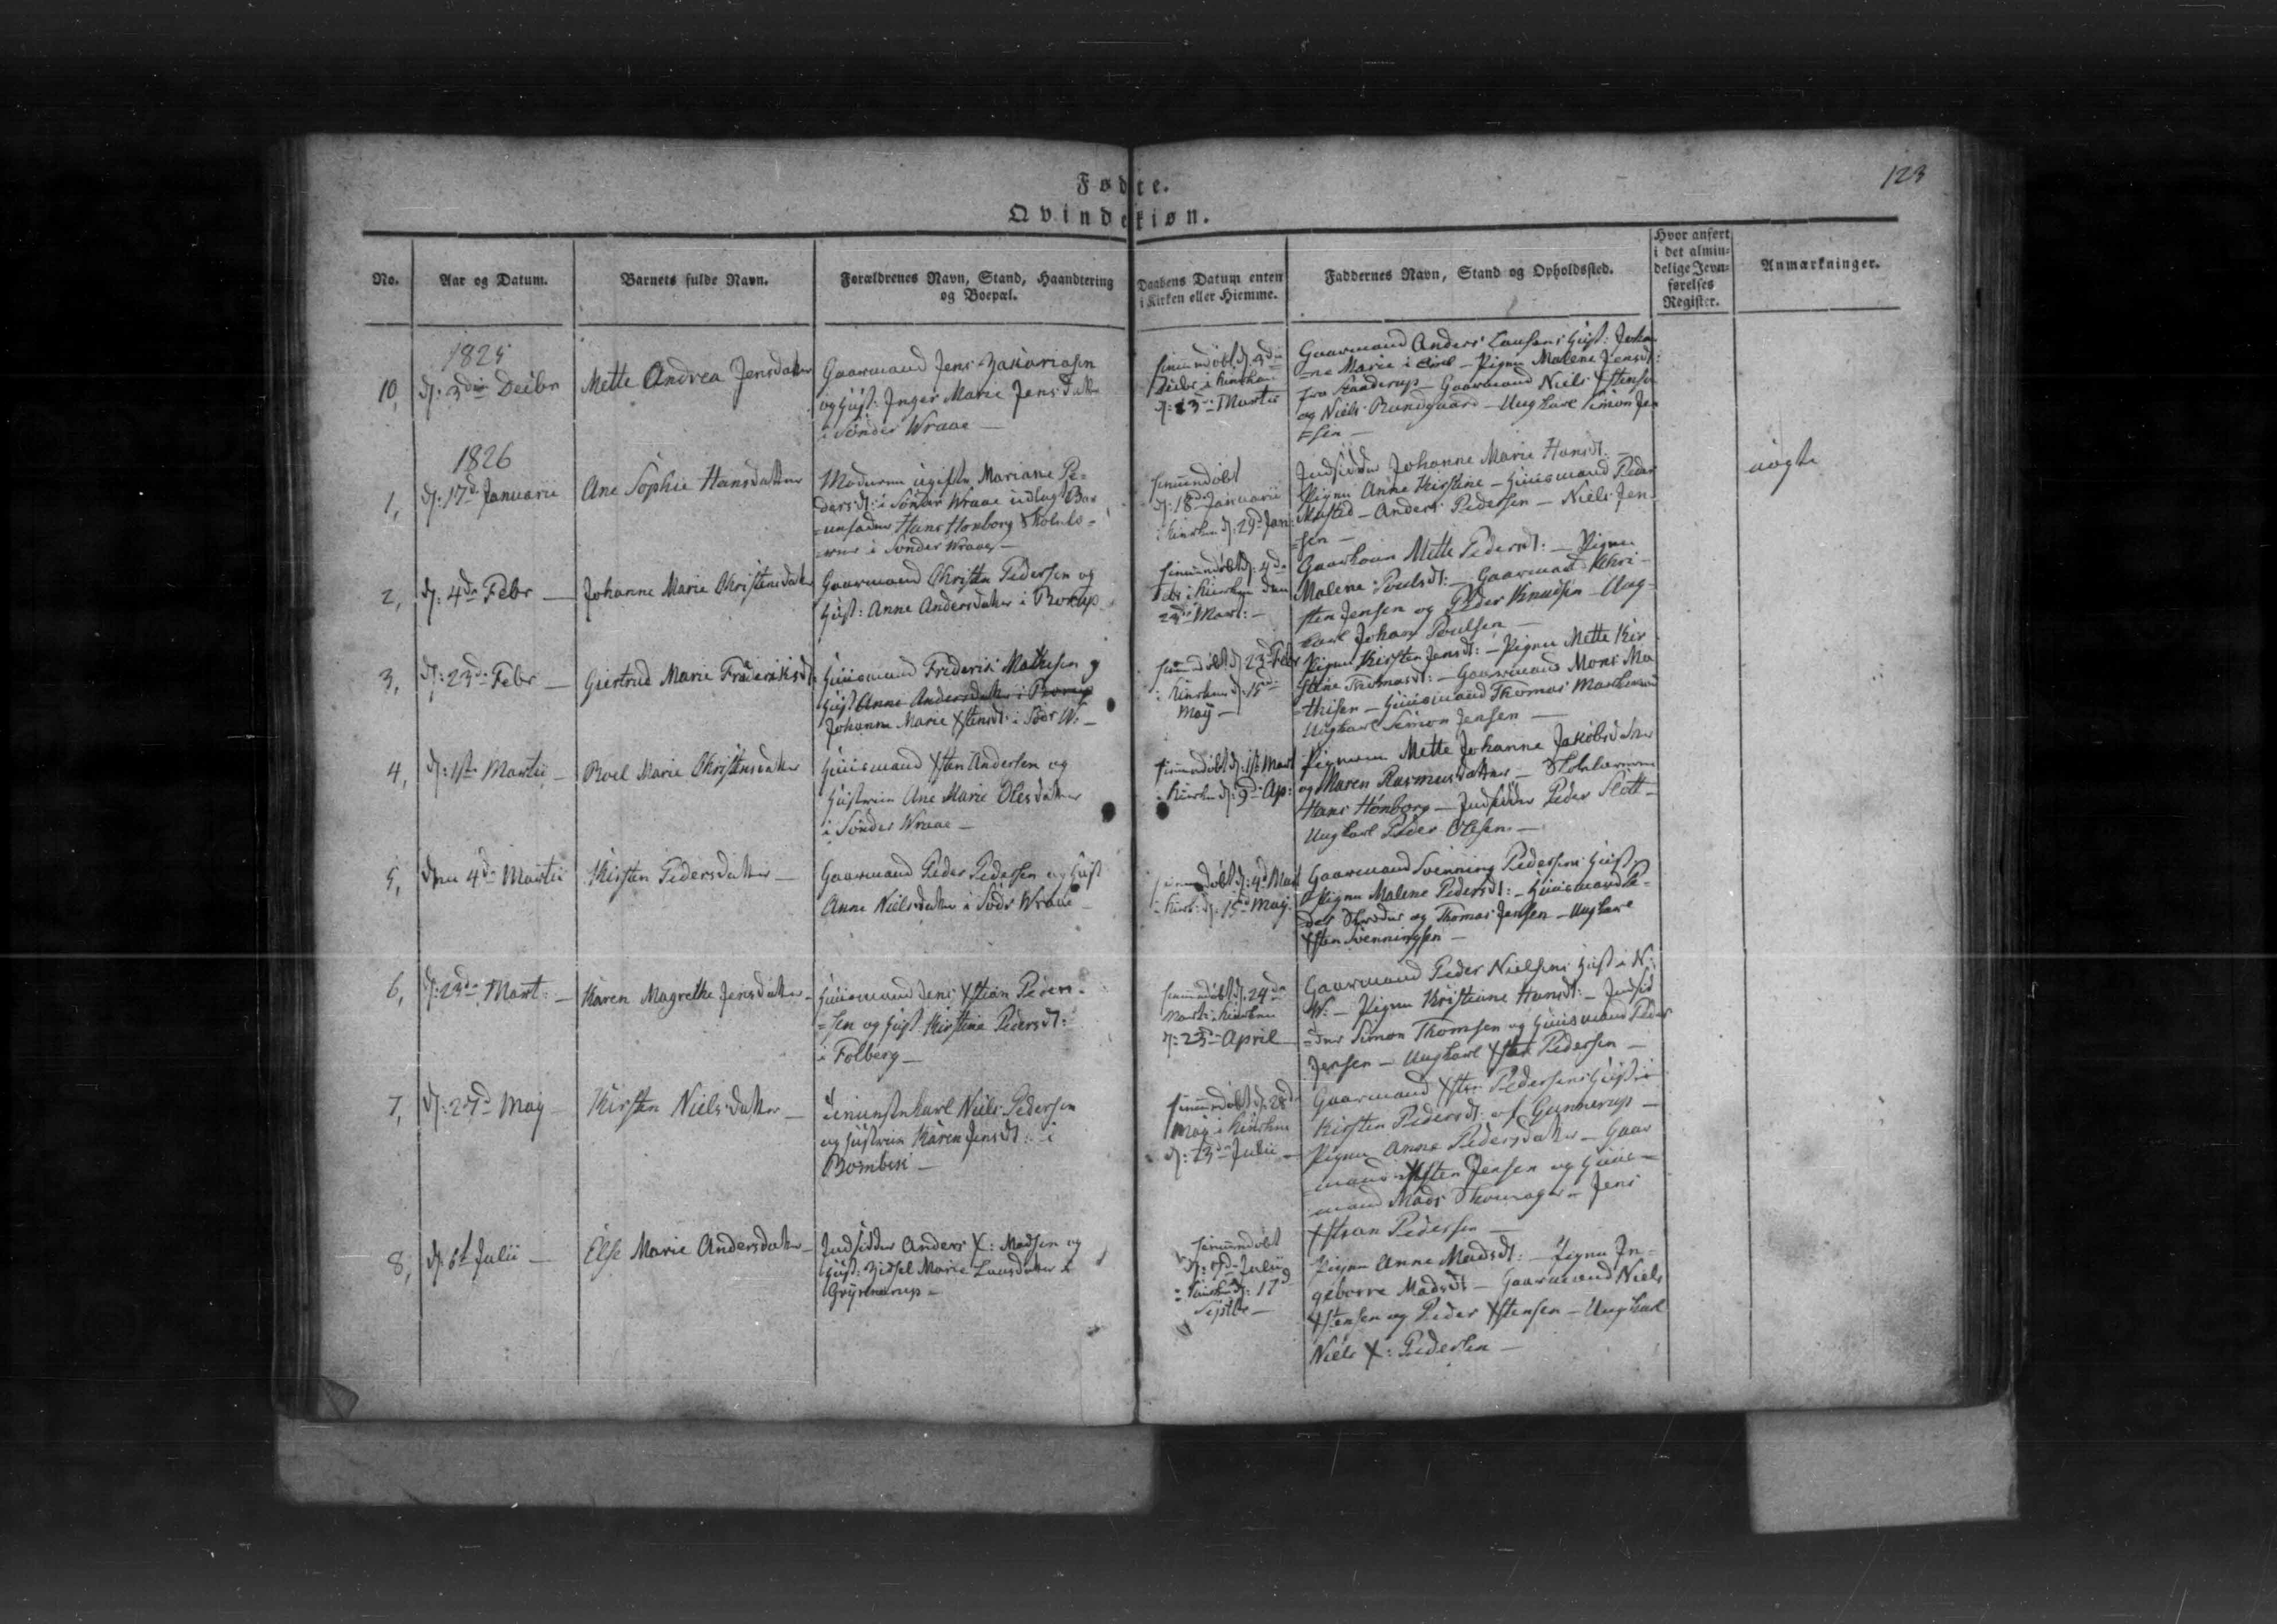 123
Fødte.
Qvindekiøn.
No.
Aar og Datum.
Barnets fulde Navn.
Forældrenes Navn, Stand, Haandtering
og Boepæl.
Daabens Datum enten
i Kirken eller Hiemme.
Faddernes Navn, Stand og Opholdssted.
Hvor anført
i det almin-
delige Jevn-
førelses
Register.
Anmærkninger.
1825
10,
d: 3die Decbr
Mette Andrea Jensdatter
Gaarmand Jens Zakariasen
og Hust: Inger Marie Jensdatter
i Sønder Wraae —
hiemmedøbt d: 3die
Decbr i Kirken
d: 23 Martii
Gaarmand Anders Lausens Hust: Johan
=ne Marie i — Pigen Malene Jensdt:
fra — Gaarmand Niels Xstensen
og Niels Rundgaard — Ungkarl Simon Jen
=sen —
1826
1,
d: 17d Januarii
Ane Sophie Hansdatter
Moderen ugifte Mariane Pe-
dersdt: i Sønder Wraae udlagt Bar
=nefader Hans Hønborg Skolelæ-
=rer i Sønder Wraae —
hiemmedøbt
d: 18d Januarii
i Kirken d: 29d Jan:
Indsidder Johanne Marie Hansdt. —
Pigen Anne Kirstine — Huusmand Peder
Mosted — Anders Pedersen — Niels Jen
=sen —
uægte
2,
d: 4de Febr —
Johanne Marie Christensdatter
Gaarmand Christen Pedersen og
Hust: Anne Andersdatter i Borup
hiemmedøbt d: 4de
Febr: i Kirken den
Mart: —
Gaarkone Mette Pedersdt: — Pigen
Malene Poulsdt: — Gaarmand Chri-
sten Jensen og Peder Knudsen — Ung-
karl Johan Poulsen —
3,
d: 23de Febr —
Giertrud Marie Frideriksdt:
Huusmand Frederik Mathisen og
Hust Anne Andersdatter i Borup
Johanne Marie Xstensdt: i Sør W: —
hiemmedøbt d: 23de Febr
i Kirken d: 15de
May —
Pigen Kirsten Jensdt: — Pigen Mette Kir
stine Thomasdt: — Gaarmand Mons Ma
=thisen — Huusmand Thomas
Ungkarl Simon Jensen —
4,
d: 1ste Martii —
Boel Marie Christensdatter
Huusmand Xsten Andersen og
Hustruen Ane Marie Olesdatter
i Sønder Wraae —
hiemmedøbt d: 1ste Mart
i Kirken d: 9de Ap:
Pigerne Mette Johanne Jakobsdatter
og Maren Rasmusdatter — Skolelæreren
Hans Hønborg — Indsidder Peder Slott —
Ungkarl Peder Olesen —
5,
den 4de Martii
Kirsten Pedersdatter —
Gaarmand Peder Pedersen og Hust
Anne Nielsdatter i Søndr Wraae —
hiemmedøbt d: 4d Mart
i Kirk: d: 15d May:
Gaarmand Svenning Pedersens Hust
Pigen Malene Pedersdt: — Huusmand Pe-
der Skræder og Thomas Jensen — Ungkarl
Xsten Svenningsen —
6,
d: 23de Mart: —
Karen Magrethe Jensdatter —
Huusmand Jens Xstian Peder-
=sen og Hust Kirstine Pedersdt:
i Folberg —
hiemmedøbt d: 24de
Mart i Kirken
d: 23de April —
Gaarmand Peder Nielsens Hust i N:
W: — Pigen Kirstine Hansdt: — Indsid
=der Simon Thomsen og Huusmand Peder
Jensen — Ungkarl Xsten Pedersen —
7,
d: 27d May —
Kirsten Nielsdatter —
Tienestekarl Niels Pedersen
og Hustruen Karen Jensdt: i
hiemmedøbt d: 28d
May i Kirken
d: 13de Julii —
Gaarmand Xsten Pedersens Hust:
Kirsten Pedersdt: af Gunnerup —
Pigen Anne Pedersdatter — Gaar
=mand Xsten Jensen og Huus-
mand Mads Skomager — Jens
Xstian Pedersen —
8,
d: 6t Julii —
Else Marie Andersdatter —
Indsidder Anders X: Madsen og
Hust: Zidsel Marie Lausdatter i
hiemmedøbt
d: 7de Julii
i Kirken d: 17d
Septbr —
Pigen Anne Madsdt: — Pigen In-
geborre Madsdt — Gaarmand Niels
Xstensen og Peder Xstensen — Ungkarl
Niels X: Pedersen —